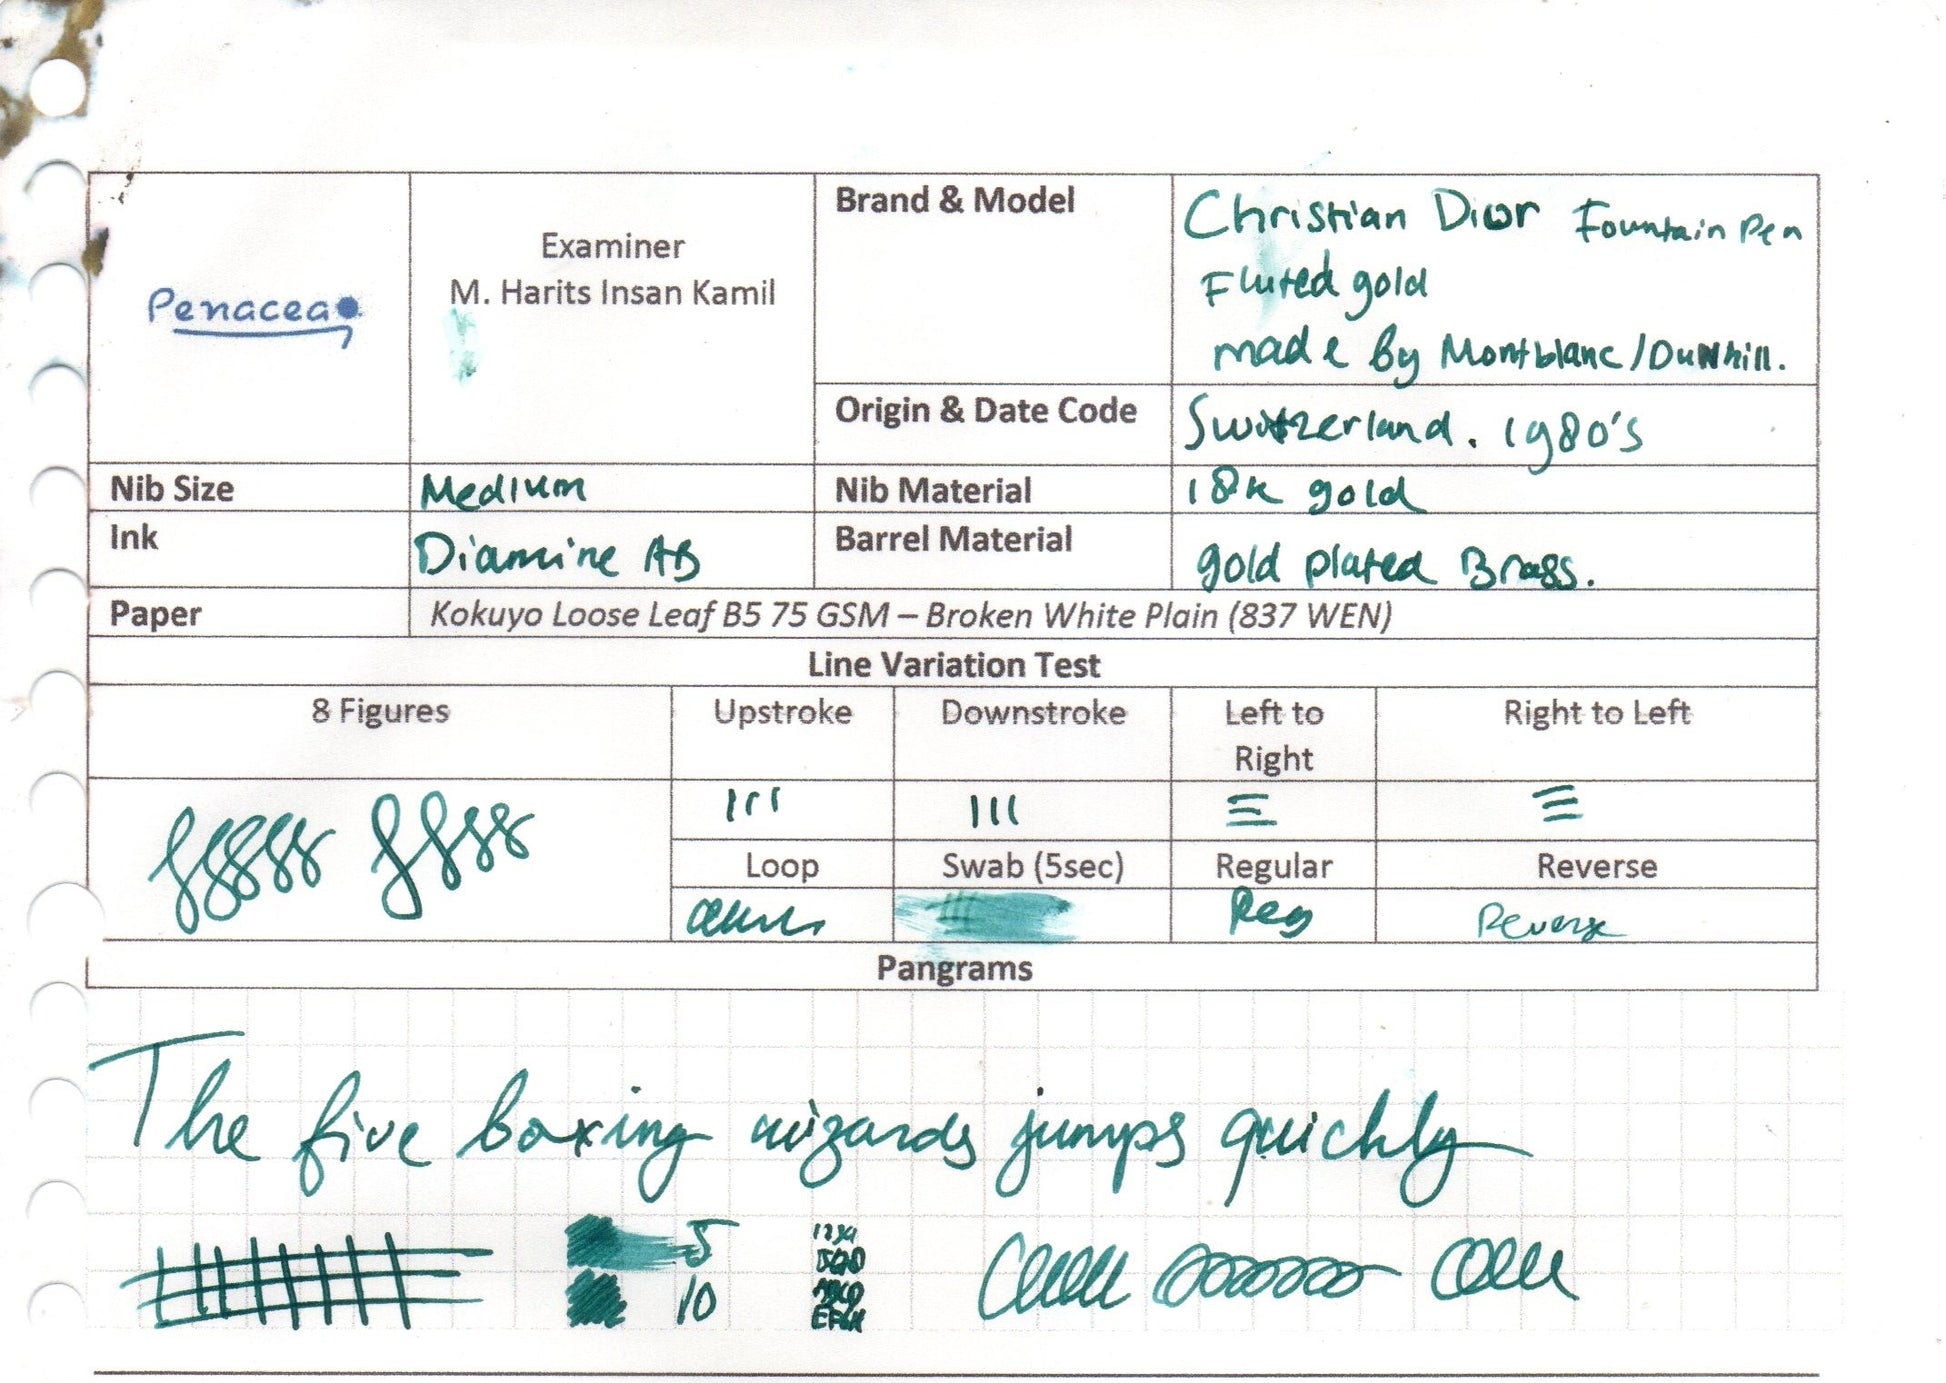 Penacea
Examiner
M. Harits Insan Kamil
Brand & Model
Christian Dior Fountain Pen
Fluted gold
made by Montblanc/Dunhill.
Origin & Date Code
Switzerland. 1980's
Nib Size
Medium
Nib Material
18k gold
Ink
Diamine AB
Barrel Material
gold plated Brass.
Paper
Kokuyo Loose Leaf B5 75 GSM – Broken White Plain (837 WEN)
Line Variation Test
8 Figures
Upstroke
Downstroke
Left to
Right
Right to Left
Loop
Swab (5sec)
Regular
Reverse
Reg
Reverse
Pangrams
The five boxing wizards jumps quickly
5
10